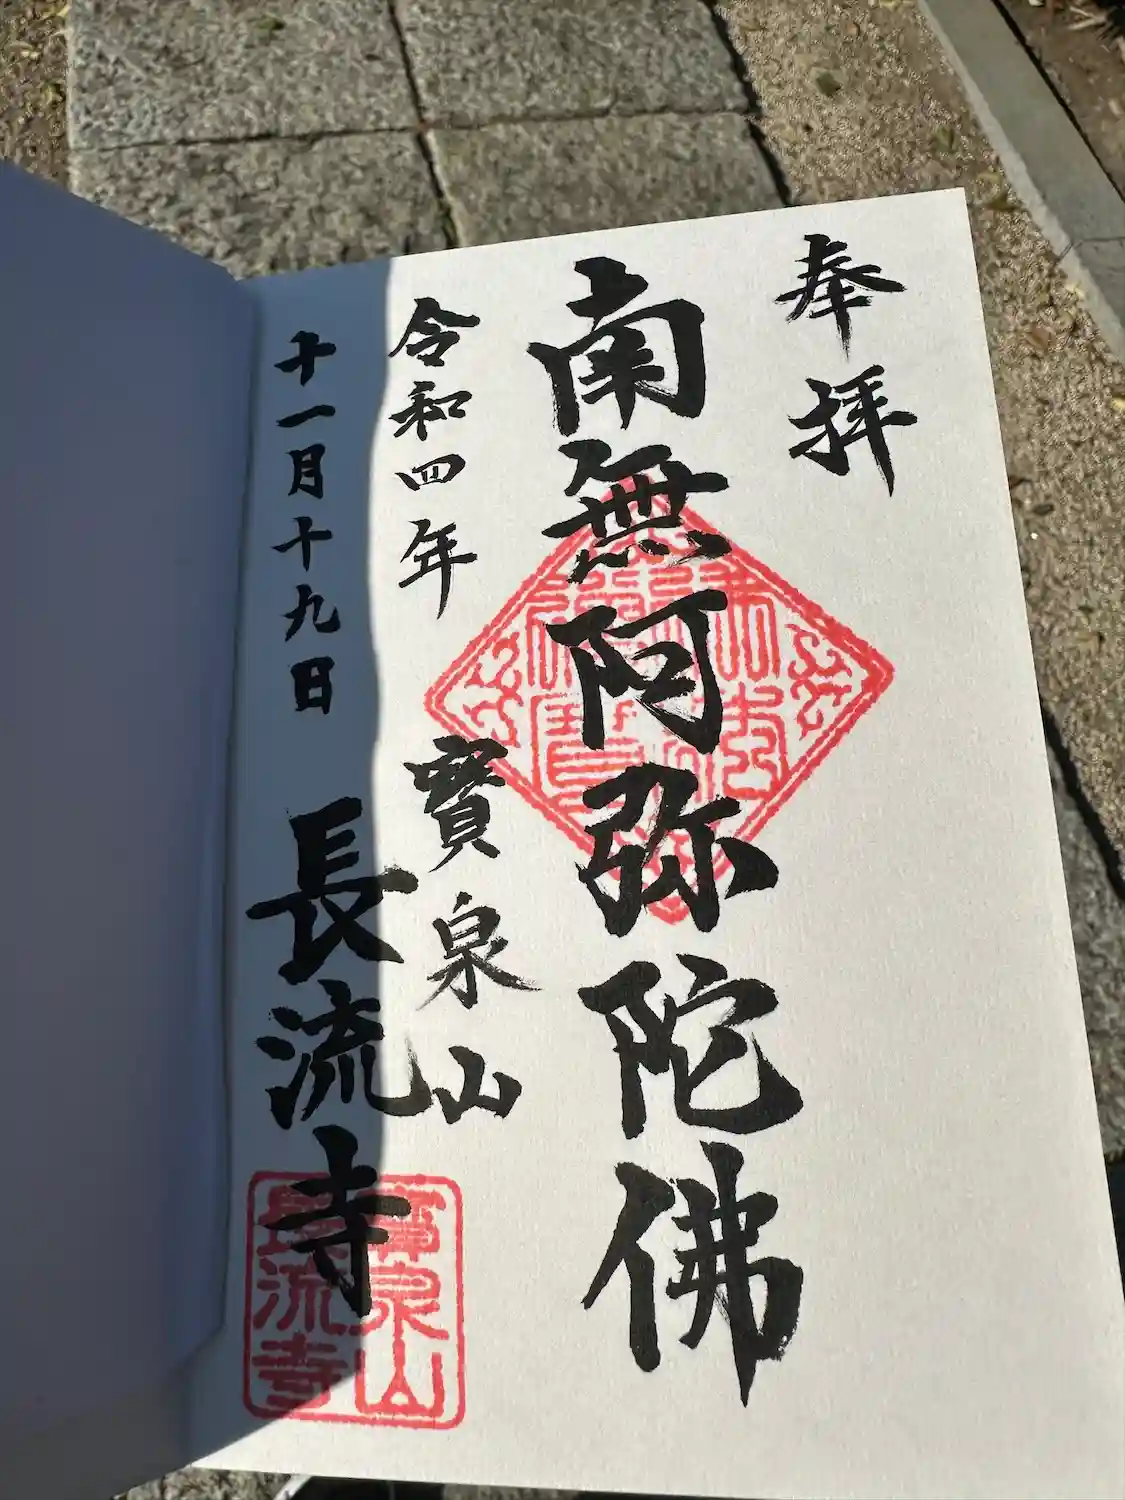 奉拝
南無阿弥陀佛
令和四年
寳泉山
十一月十九日
長流寺
寳泉山
長流寺